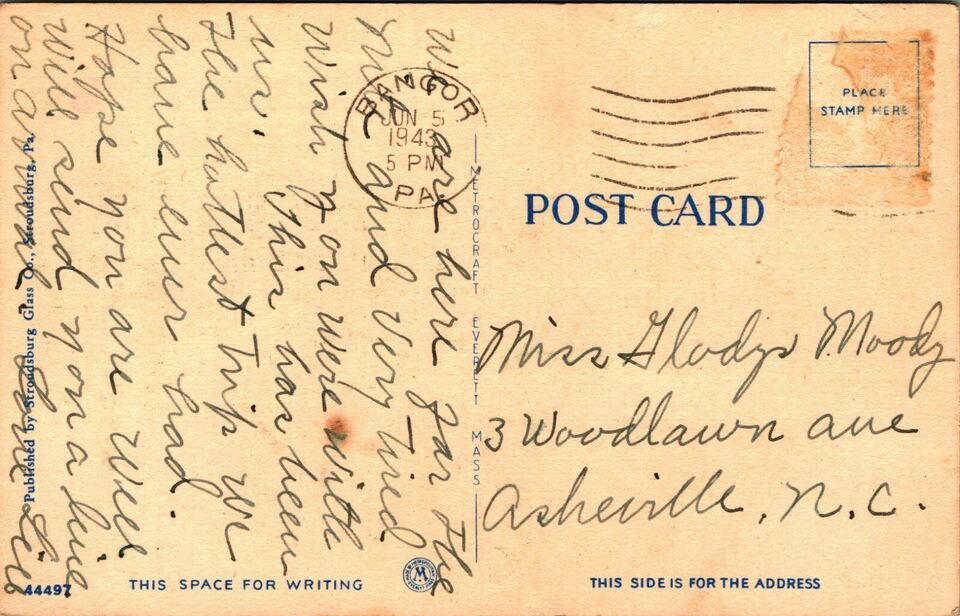 We are here for the
night and very tired
Wish you were with
us. This has been
the hottest trip we
have ever had.
Hope you are well
Will send you a line
on arrival. Love
BANGOR
JUN 5
1943
5 PM
PA.
PLACE
STAMP HERE
POST CARD
Miss Gladys Moody
3 Woodlawn ave
Asheville, N.C.
METROCRAFT EVERETT MASS
Published by Stroudsburg Glass Co., Stroudsburg, Pa.
44497
THIS SPACE FOR WRITING
W
THIS SIDE IS FOR THE ADDRESS